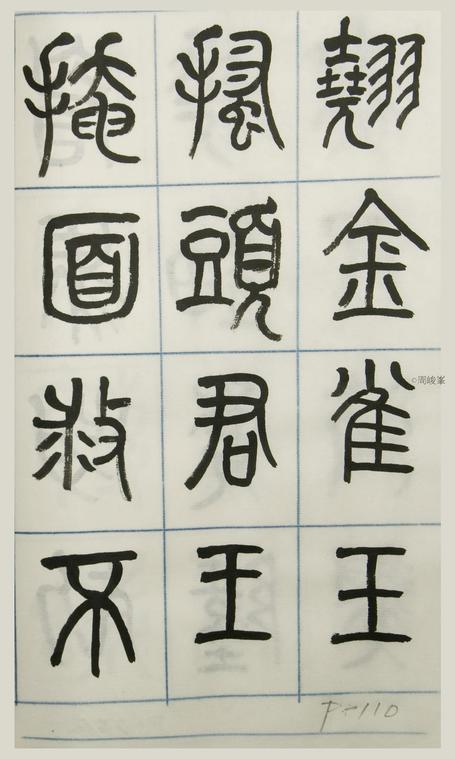 翹金雀玉
搔頭君王
掩面救不
©周峻峯